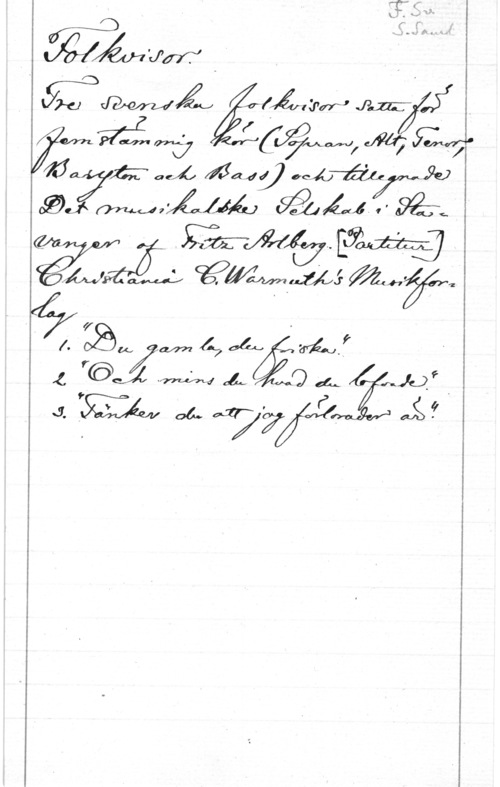 F. Sv.
S. Saml.
Folkvisor.
Tre svenska folkvisor satta för
femstämmig kör (Sopran, Alt, Tenor,
Baryton och Bass) och tillegnade
Det musikalske Selskab i Sta-
vanger af Fritz Arlberg. [Partitur]
Christiania C. Warmuth's Musikfor-
lag
1. "Du gamla, du friska."
2. "Och mins du hvad du lofvade."
3. "Tänker du att jag förlorader är."